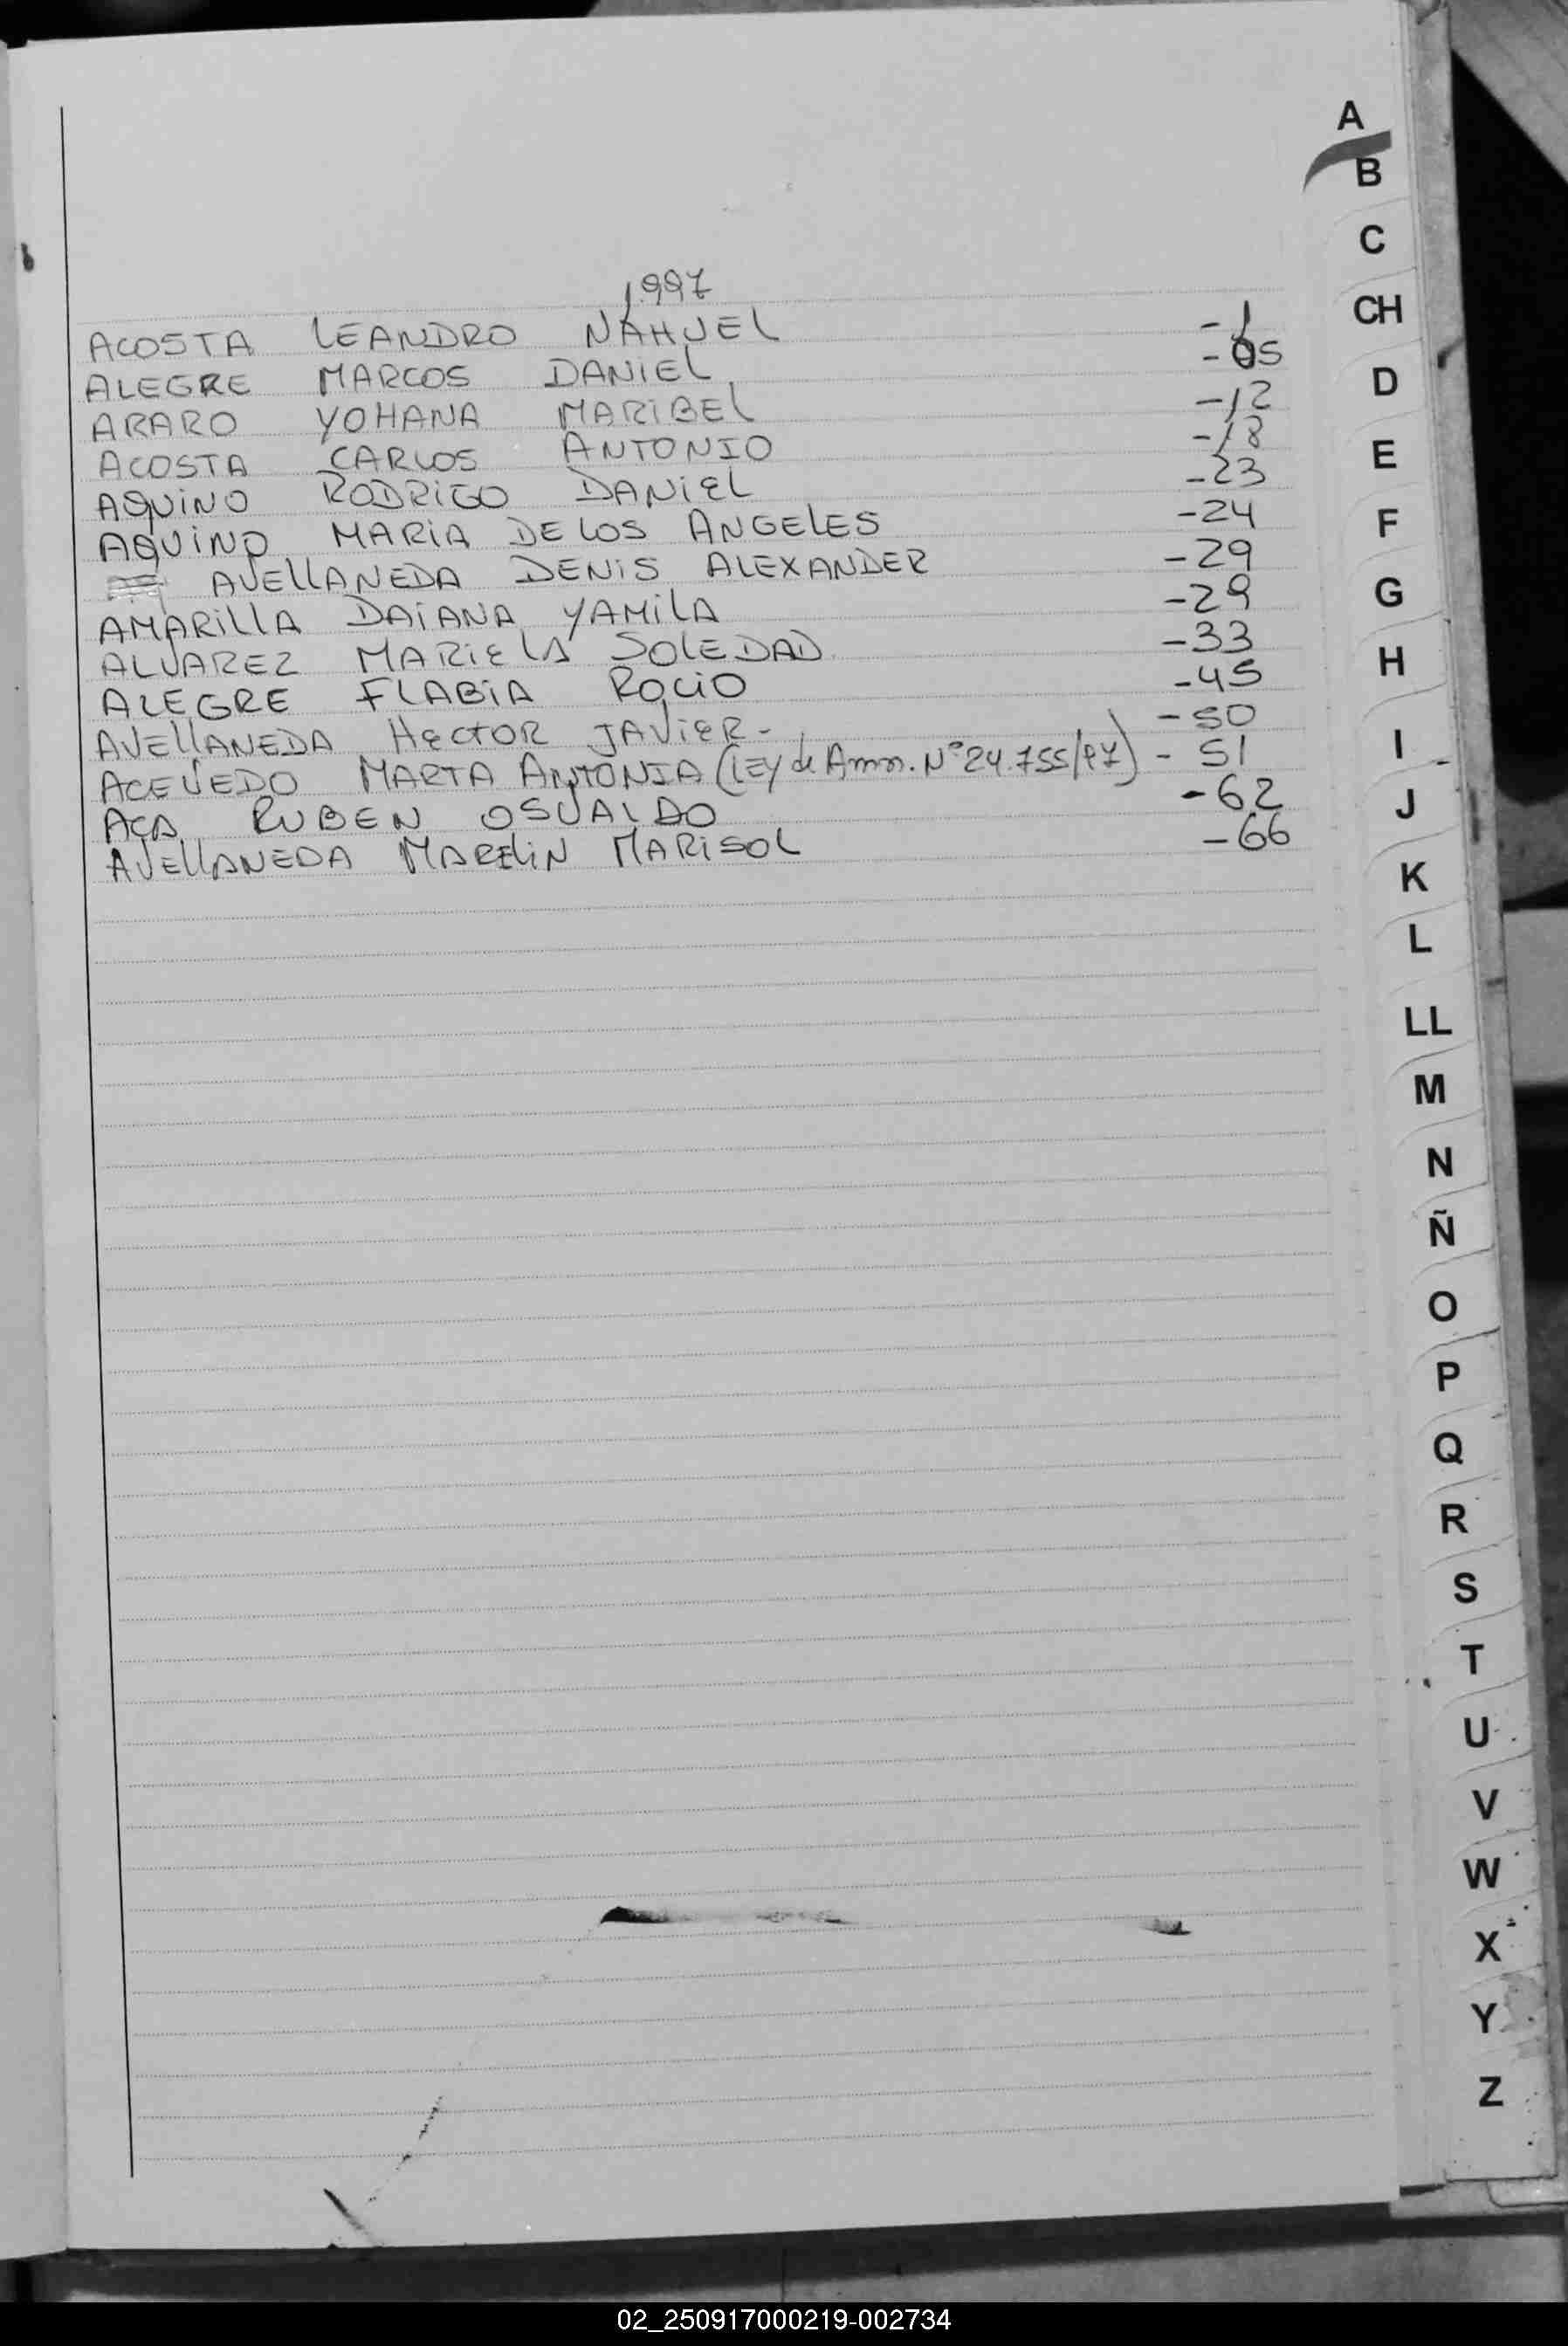 1.997
ACOSTA LEANDRO NAHUEL -1
ALEGRE MARCOS DANIEL -05
ARARO YOHANA MARIBEL -12
ACOSTA CARLOS ANTONIO -18
AQUINO RODRIGO DANIEL -23
AQUINO MARIA DE LOS ANGELES -24
AVELLANEDA DENIS ALEXANDER -29
AMARILLA DAIANA YAMILA -29
ALVAREZ MARIELA SOLEDAD -33
ALEGRE FLABIA ROCIO -45
AVELLANEDA HECTOR JAVIER- -50
ACEVEDO MARTA ANTONIA (LEY de Amn. N° 24.755/97) - 51
RUBEN OSVALDO -62
AVELLANEDA MARELIN MARISOL -66
A
B
C
CH
D
E
F
G
H
I
J
K
L
LL
M
N
Ñ
O
P
Q
R
S
T
U
V
W
X
Y
Z
02_250917000219-002734